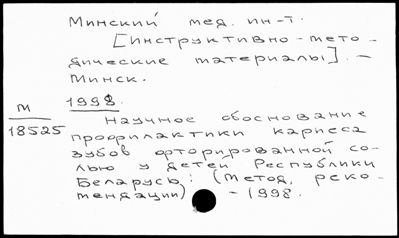 Минский мед. ин-т.
[инструктивно-мето-
дические материалы]. -
Минск.
1998.
М
18525
Научное обоснование
профилактики кариеса
зубов фторированной со-
лью у детей Республики
Беларусь: (Метод. реко-
мендации) - 1998.